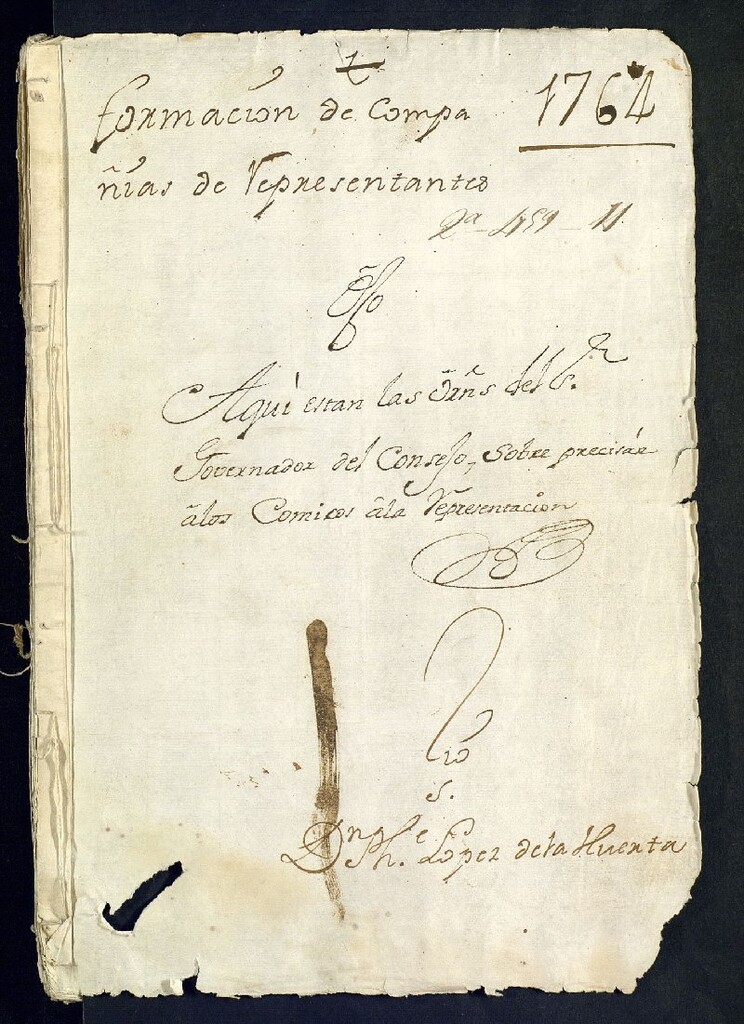 formacion de Compa
1764
ñias de Representantes
2ª - 459 - 11
Aqui estan las ôrns del Sr.
Governador del Consejo, sobre precisar
âlos Comicos âla Representacion
s.
Dn Ph.e Lopez dela Huerta